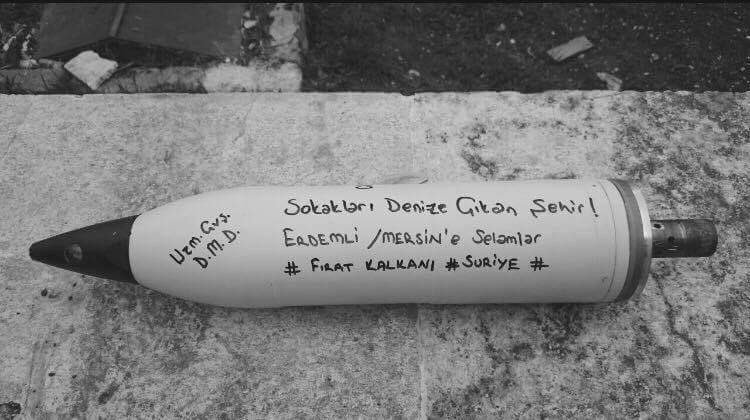 Uzm. Çvş.
D.M.D.
Sokakları Denize Çıkan Şehir!
ERDEMLİ / MERSİN'e Selamlar
# FIRAT KALKANI # SURİYE #